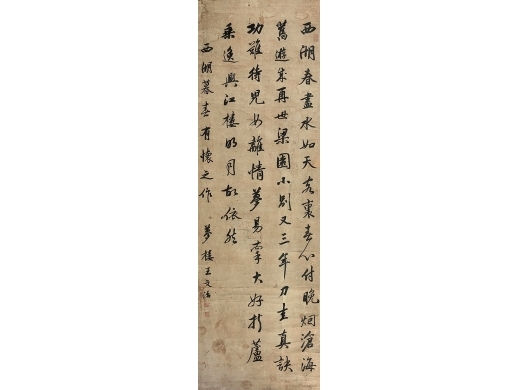 西湖春盡水如天客裏春心付晚烟滄海
舊遊成再世梁園小別又三年刀圭真訣
功難待兒女離情夢易牽大好折蘆
乘逸興江樓明月故依然
西湖暮春有懷之作 夢樓王文治